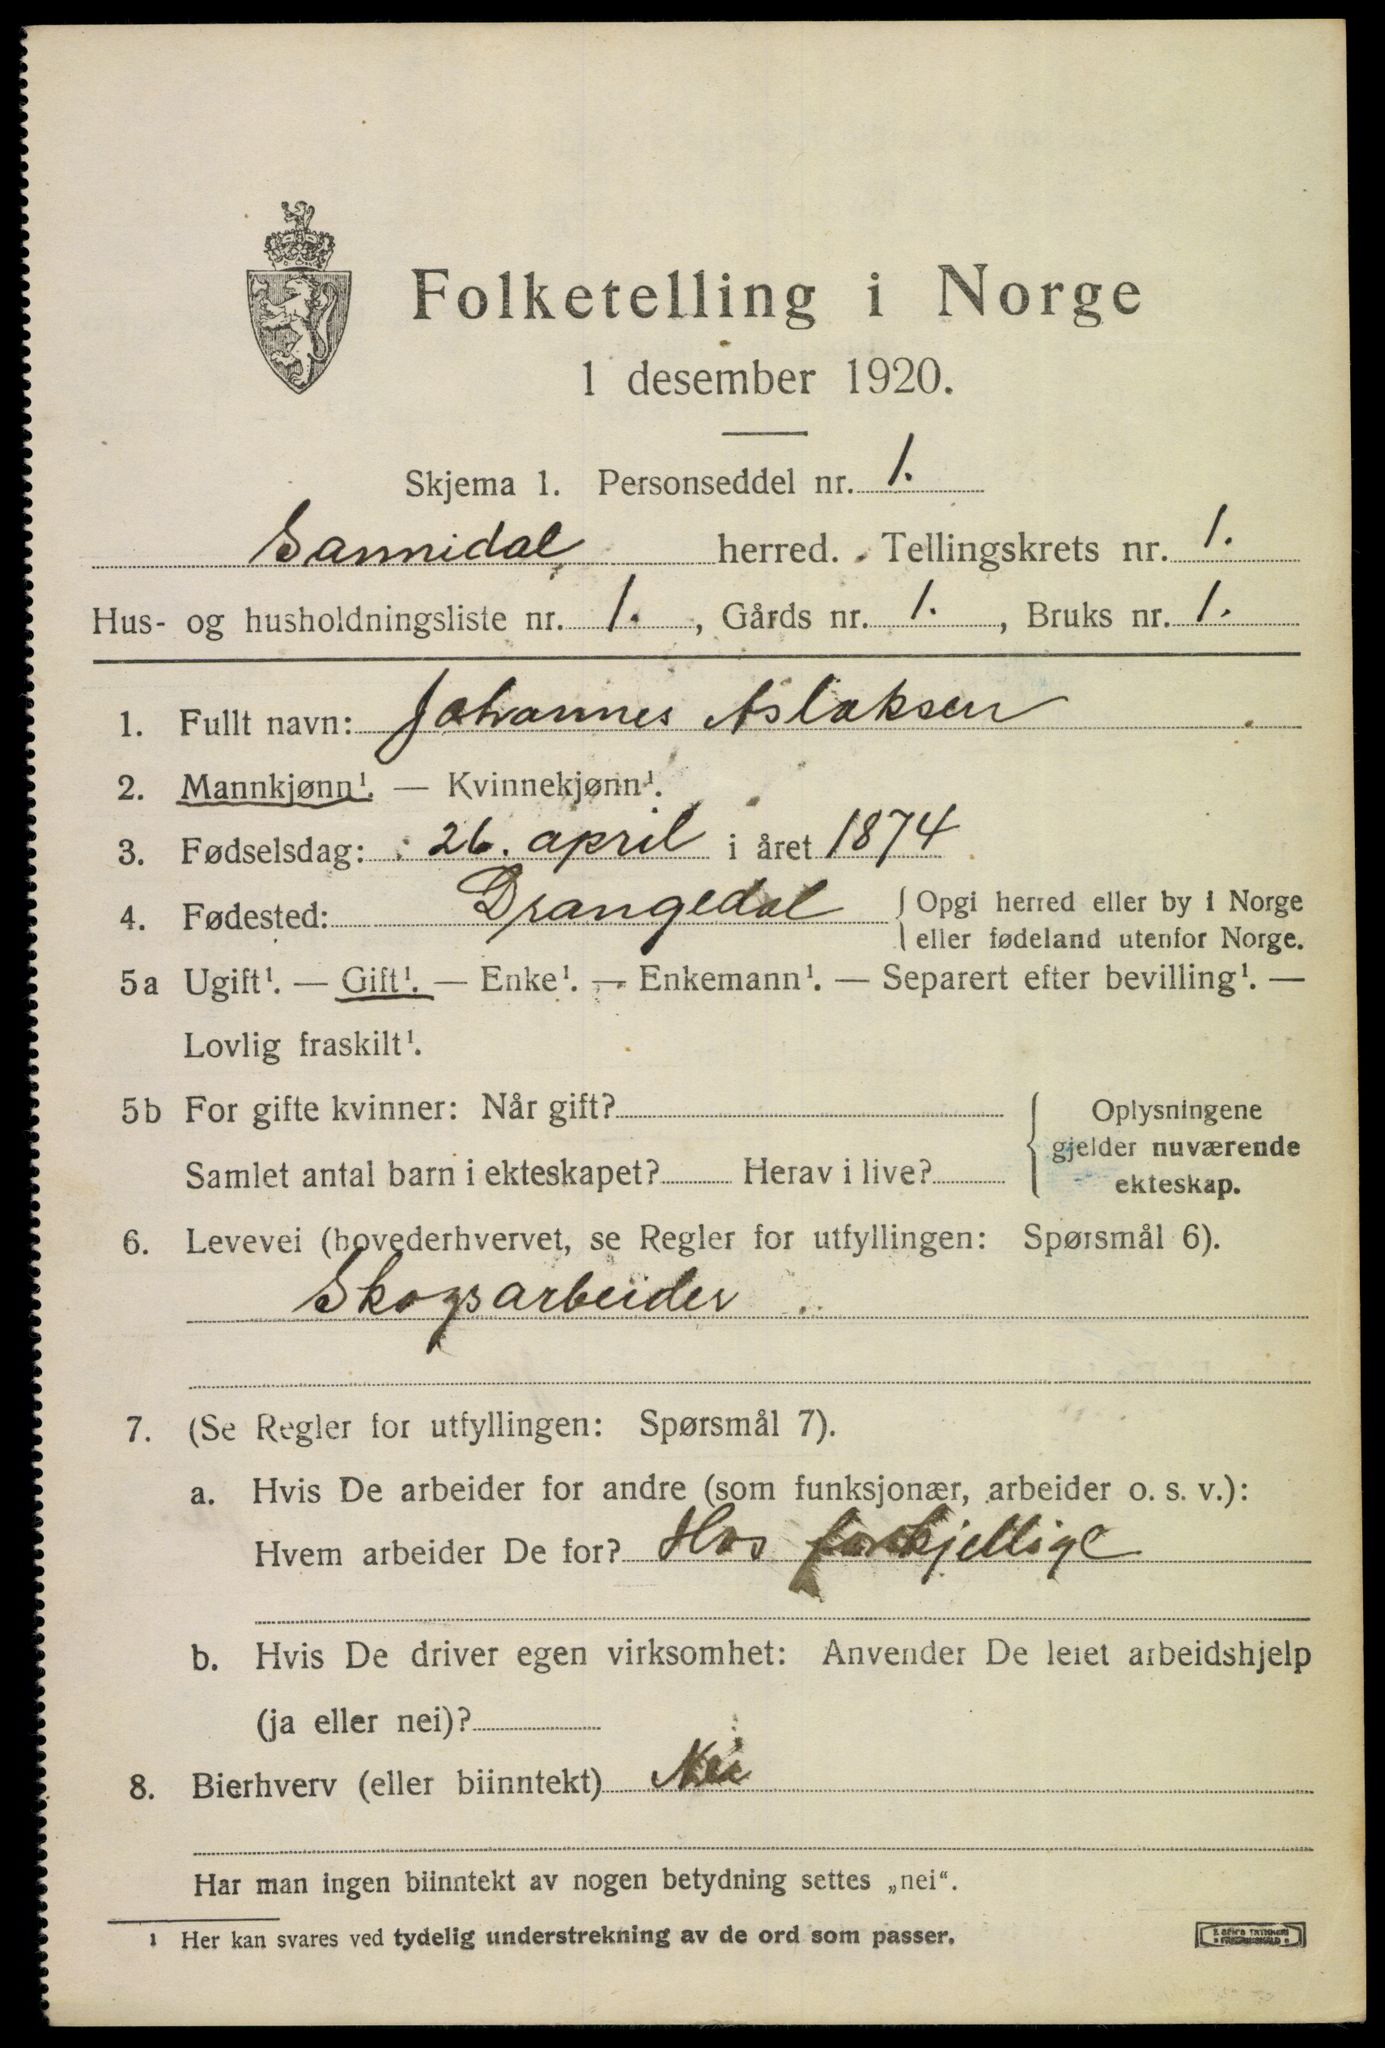 Folketelling i Norge
1 desember 1920.
Skjema 1. Personseddel nr. 1.
Sannidal herred. Tellingskrets nr. 1.
Hus- og husholdningsliste nr. 1., Gårds nr. 1., Bruks nr. 1.
1. Fullt navn: Johannes Aslaksen
2. Mannkjønn¹. — Kvinnekjønn¹.
3. Fødselsdag: 26. april i året 1874
4. Fødested: Drangedal { Opgi herred eller by i Norge
eller fødeland utenfor Norge.
5a Ugift¹. — Gift¹. — Enke¹. — Enkemann¹. — Separert efter bevilling¹. —
Lovlig fraskilt¹.
5b For gifte kvinner: Når gift?
Samlet antal barn i ekteskapet? Herav i live?
{ Oplysningene
gjelder nuværende
ekteskap.
6. Levevei (hovederhvervet, se Regler for utfyllingen: Spørsmål 6).
Skogsarbeider
7. (Se Regler for utfyllingen: Spørsmål 7).
a. Hvis De arbeider for andre (som funksjonær, arbeider o. s. v.):
Hvem arbeider De for? Hos forskjellige
b. Hvis De driver egen virksomhet: Anvender De leiet arbeidshjelp
(ja eller nei)?
8. Bierhverv (eller biinntekt) Nei
Har man ingen biinntekt av nogen betydning settes „nei“.
¹ Her kan svares ved tydelig understrekning av de ord som passer.